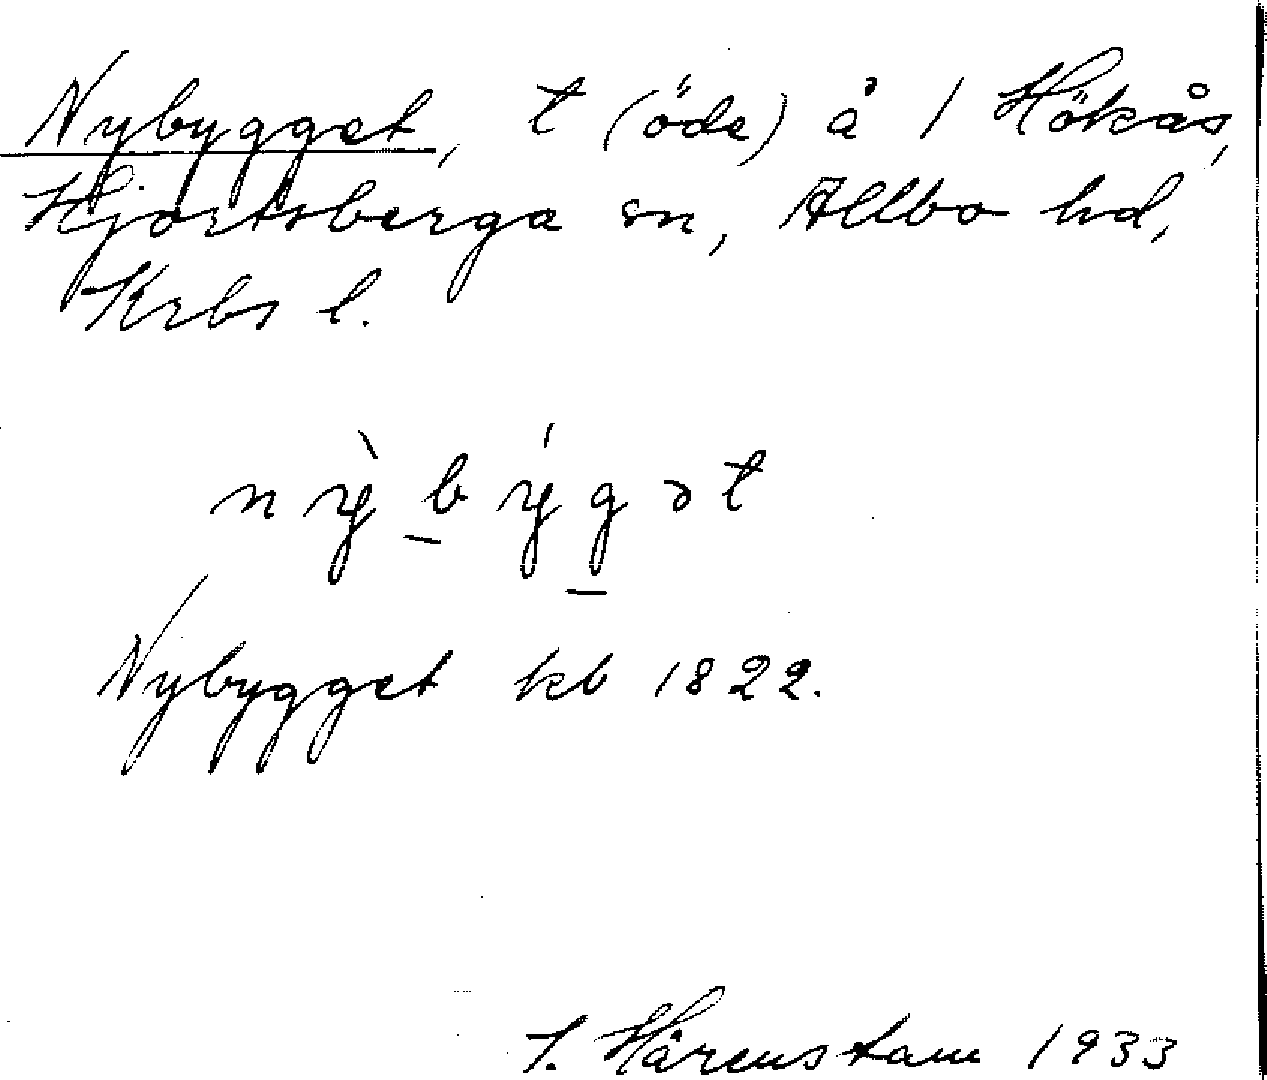 Nybygget, t (öde) å 1 Hökås,
Hjortsberga sn, Allbo hd,
Krbs l.
nỳbýgət
Nybygget kb 1822.
Hårenstam 1933